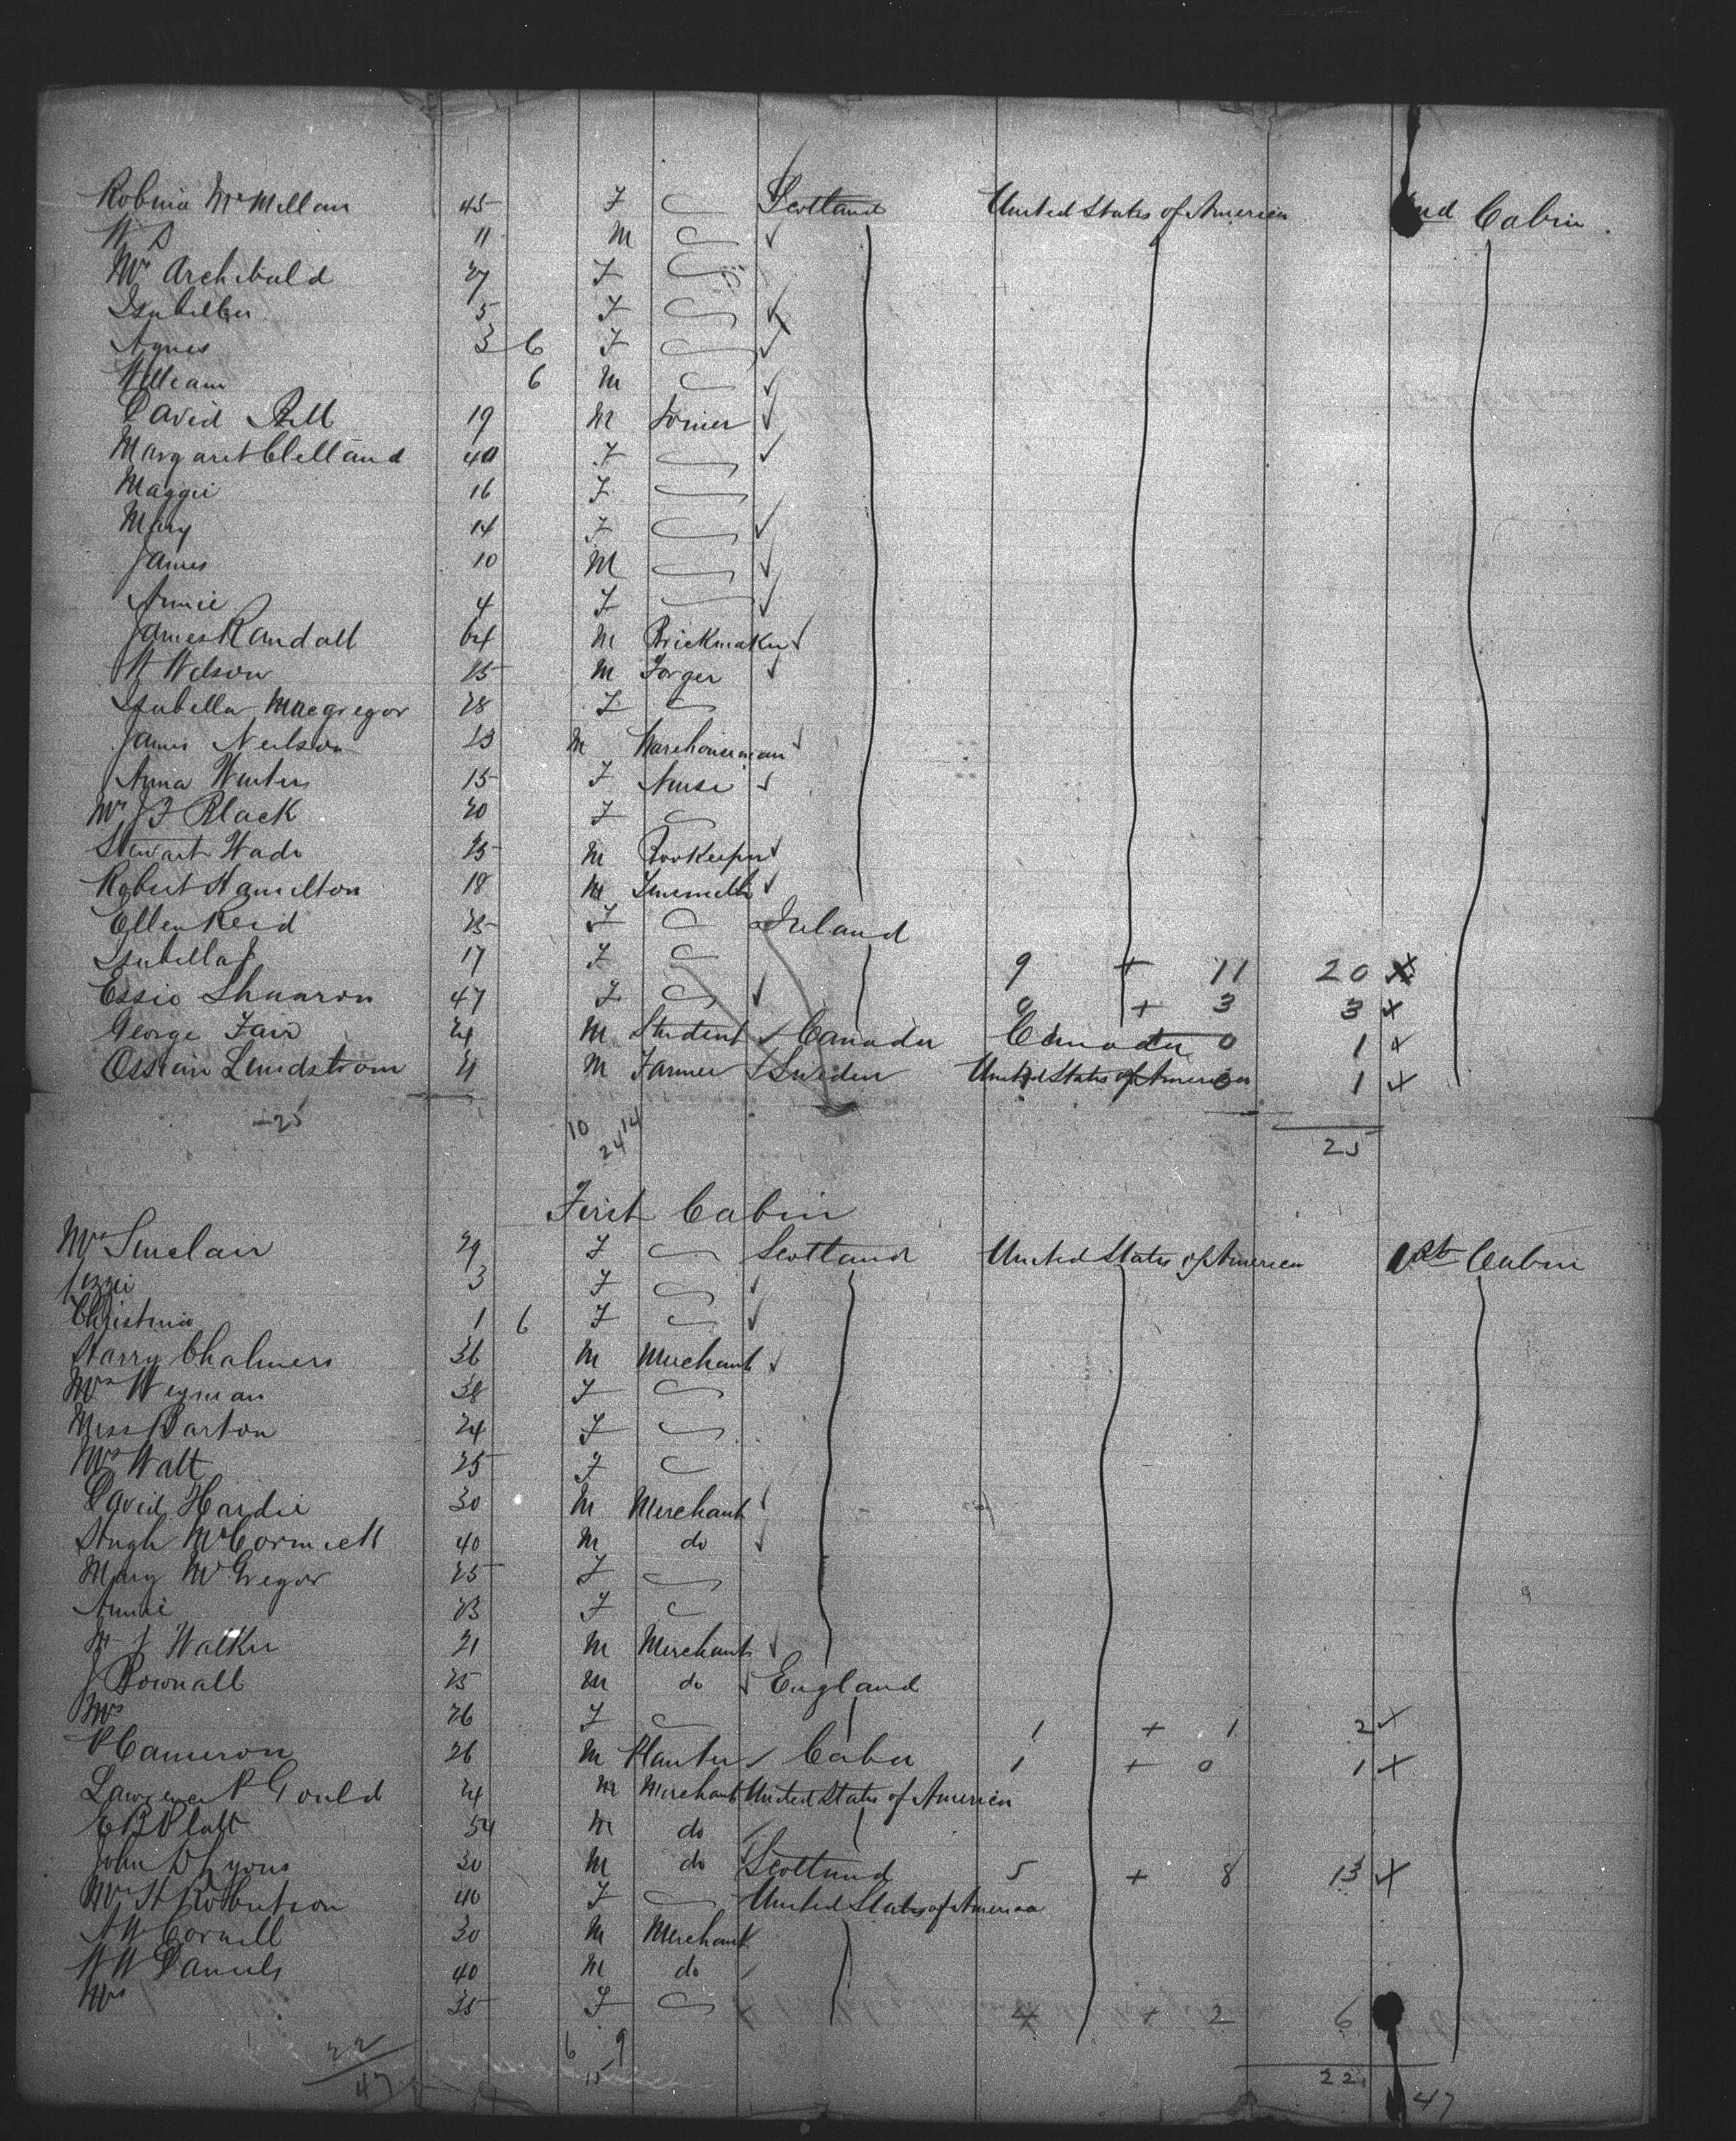 Robina McMillan 45 F Scotland United States of America 2nd Cabin
W D 11 M
Mrs Archibald 27 F
Isabella 5 F
Agnes 3 6 F
William 6 M
David Bell 19 M Joiner
Margaret Clelland 40 F
Maggie 16 F
Mary 14 F
James 10 M
Annie 4 F
James Randall 64 M Brickmaker
W Wilson 25 M Forger
Isabella Macgregor 28 F
James Neilson 23 M Warehouseman
Anna Winters 15 F Nurse
Mrs J F Black 20 F
Stewart Wade 25 M Bookeeper
Robert Hamilton 18 M Tinsmith
Ellen Reid 25 F Ireland
Isabella J 17 F 9 + 11 20
Essie Shannon 47 F 0 + 3 3
George Fair 24 M Student Canada Canada 0 1
Ossian Lundstrom 21 M Farmer Sweden United States of America 0 1
25 10 14 24 25
First Cabin
Mrs Sinclair 29 F Scotland United States of America 1st Cabin
Jezzie 3 F
Christina 1 6 F
Harry Chalmers 36 M Merchant
Mrs Weyman 38 F
Miss Barton 24 F
Mrs Watt 25 F
David Hardie 30 M Merchant
Hugh McCormick 40 M do
Mary McGregor 25 F
Annie 23 F
M J Walker 21 M Merchant
J Pownall 25 M do England
Mrs 26 F 1 + 1 2
P Cameron 26 M Planter Cuba 1 + 0 1
Lawrence P Gould 24 M Merchant United States of America
E B Platt 54 M do
John D Lyons 30 M do Scotland 5 + 8 13
Mrs H Robertson 40 F United States of America
A W Cornell 30 M Merchant
W W Daniels 40 M do
Mrs 35 F 4 + 2 6
22 6 9 22
47 15 47